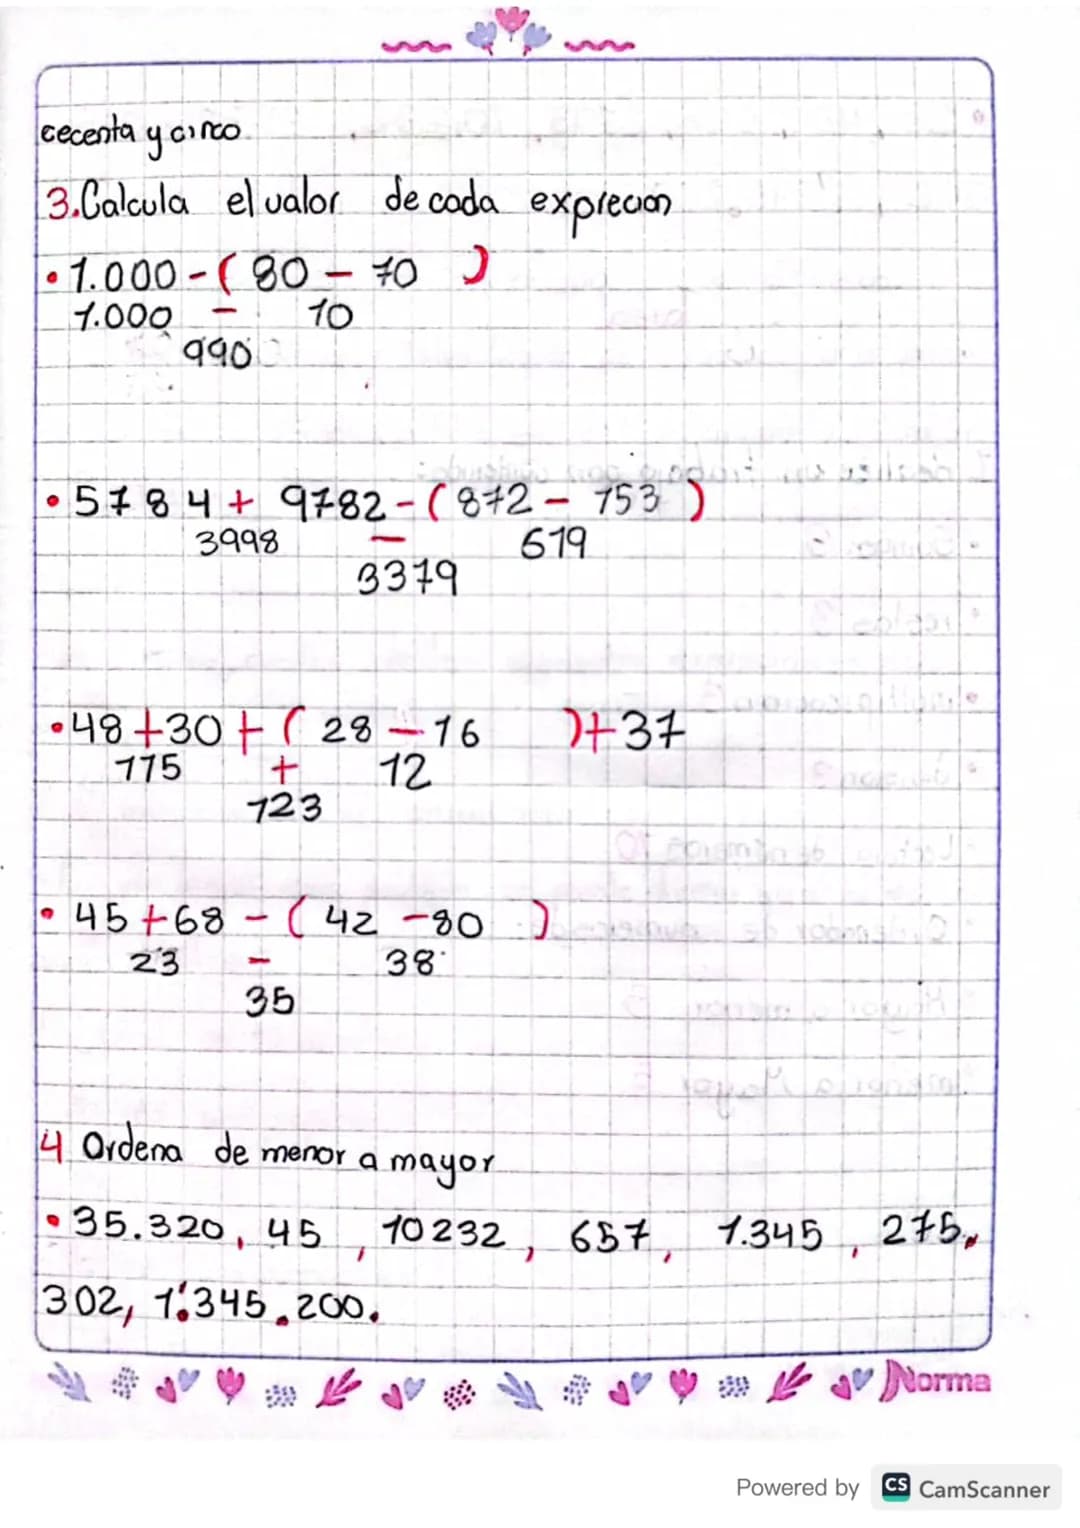 cecenta y cinco.
3.Calcula el valor de cada exprecion
• 1.000 - ( 80 - 70 )
1.000 - 10
990
• 5784 + 9782 - ( 872 - 753 )
3998 - 619
3379
• 48 + 30 + ( 28 - 16 ) + 37
115 + 12
123
• 45 + 68 - ( 42 - 80 )
23 - 38
35
4 Ordena de menor a mayor
• 35.320, 45, 10232, 657, 1.345, 275.
302, 1:345.200.
Norma
Powered by CS CamScanner